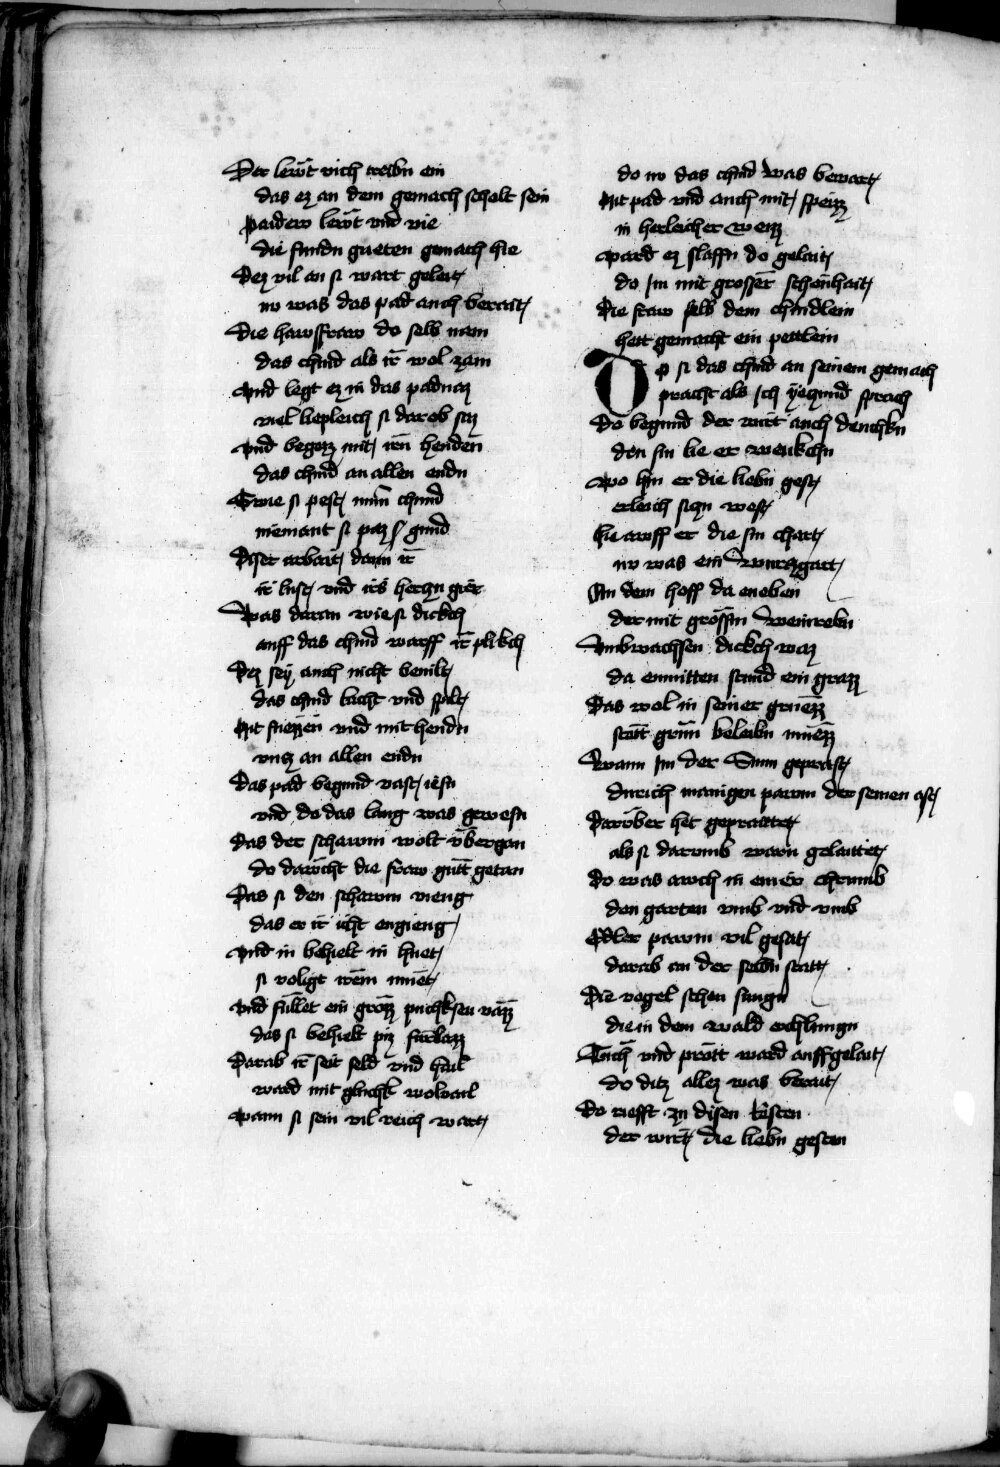 Der lewt vich treibn ein
das ez an dem gemach scholt sein
paiderv lewt vnd vie
die fundn gueten gemach hie
Dez vil an si wart geleit
nv was das pad auch berait
Die hawsfraw do selb nam
das chind als ir wol zam
vnd legt ez in das padvaz
viel liepleich si dar ob saz
vnd begozz mit irn henden
das chind an allen endn
Swie si pest mim chind
niemant si paz gund
Diser arbait dann ir
ir lust vnd irs hertzn gir
Was daran wie si dickch
auff das chind warff ir plikch
Dez sey auch nicht bevilt
das chind lacht vnd spilt
Mit fuezzen vnd mit hendn
vntz an allen endn
Das pad begund vast iesn
vnd do das lang was gewesn
Das der schawm wolt vbergan
do daucht die fraw gut getan
Das si den schawm vieng
das er ir icht engieng
vnd in behielt in huet
si voligt irem muet
vnd fullet ein grozz puchksen vazz
das si behielt piz furbazz
Darab ir seit seld vnd hail
ward mit glucht wolvail
wann si sein vil reich wart
do nv das chind was bewart
Mit pad vnd auch mit speizz
in herleicher weizz
ward ez slaffn do gelait
do im mit grosser schonhait
Die fraw selb dem chindlein
hett gemacht ein pettlein
Do si das chind an seinem gemach
pracht als ich yetzund sprach
Do begund der wirt auch denchkn
den sin lie er wenkchn
wo hin er die liebn gest
erleich sitzn west
hie awff er die sin chart
nv was ein wurtzgart
An dem hoff da eneben
der mit grossin weinrebn
Vmbwachsen dickch waz
da enmitten stund ein grazz
Das wol in seiner gruezz
statt grun beleibn muezz
Wann im der Sunn geprast
durich manigen pawm der seinen ast
Daruber het gepraittet
als si darumb warn gelaittet
Do was awch in einer chrumb
den garten vmb vnd vmb
Edler pawm vil gesat
darab an der selbn statt
Die vogel schon sungn
die in dem wald erchlungn
Tuch vnd prott ward auffgelait
do ditz allez was berait
Do rufft zu disen tristen
der wirt die liebn gesten